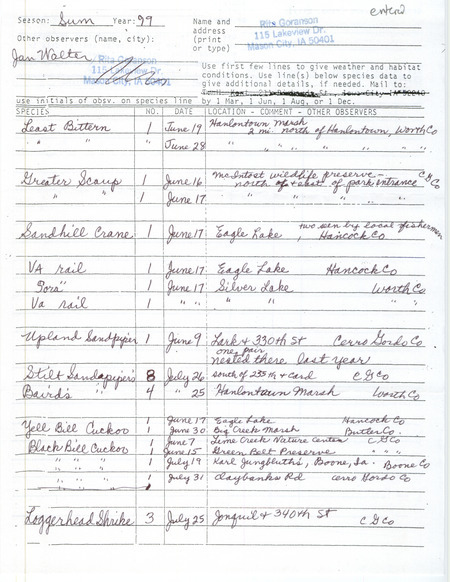 entered
Season: Sum Year: 99 Name and Rita Goranson
address 115 Lakeview Dr.
Other observers (name, city): (print Mason City, IA 50401
or type)
Jan Walter Rita Goranson
115 Lakeview Dr. Use first few lines to give weather and habitat
Mason City, IA 50401 conditions. Use line(s) below species data to
give additional details, if needed. Mail to:
use initials of obsv. on species line by 1 Mar, 1 Jun, 1 Aug, or 1 Dec.
SPECIES NO. DATE LOCATION - COMMENT - OTHER OBSERVERS
Least Bittern 1 June 19 Hanlontown Marsh
2 mi. north of Hanlontown, Worth Co
" " 1 June 28 " " " " "
Greater Scaup 1 June 16 McIntosh wildlife preserve -
north of + east of park entrance C G Co
" " 1 June 17 " " " " "
Sandhill Crane 1 June 17 Eagle Lake, two seen by local fishermen
Hancock Co
VA rail 1 June 17 Eagle Lake Hancock Co
Sora " 1 June 17 Silver Lake Worth Co
Va rail 1 " " " " " "
Upland Sandpiper 1 June 9 Lark & 330th St Cerro Gordo Co
one pair
nested there last year
Stilt Sandapipers 8 July 26 south of 235th + card C G Co
Baird's " 4 " 25 Hanlontown Marsh Worth Co
Yell Bill Cuckoo 1 June 17 Eagle Lake Hancock Co
1 June 30 Big Creek Marsh Butler Co.
Black Bill Cuckoo 1 June 7 Lime Creek Nature Center C G Co
" " " 1 June 15 Green Belt Preserve " " "
" " " 1 July 19 Karl Jungbluths, Boone, Ia. Boone Co
" " " 1 July 31 Claybanks Rd Cerro Gordo Co
Loggerhead Shrike 3 July 25 Jonquil & 340th St C G Co